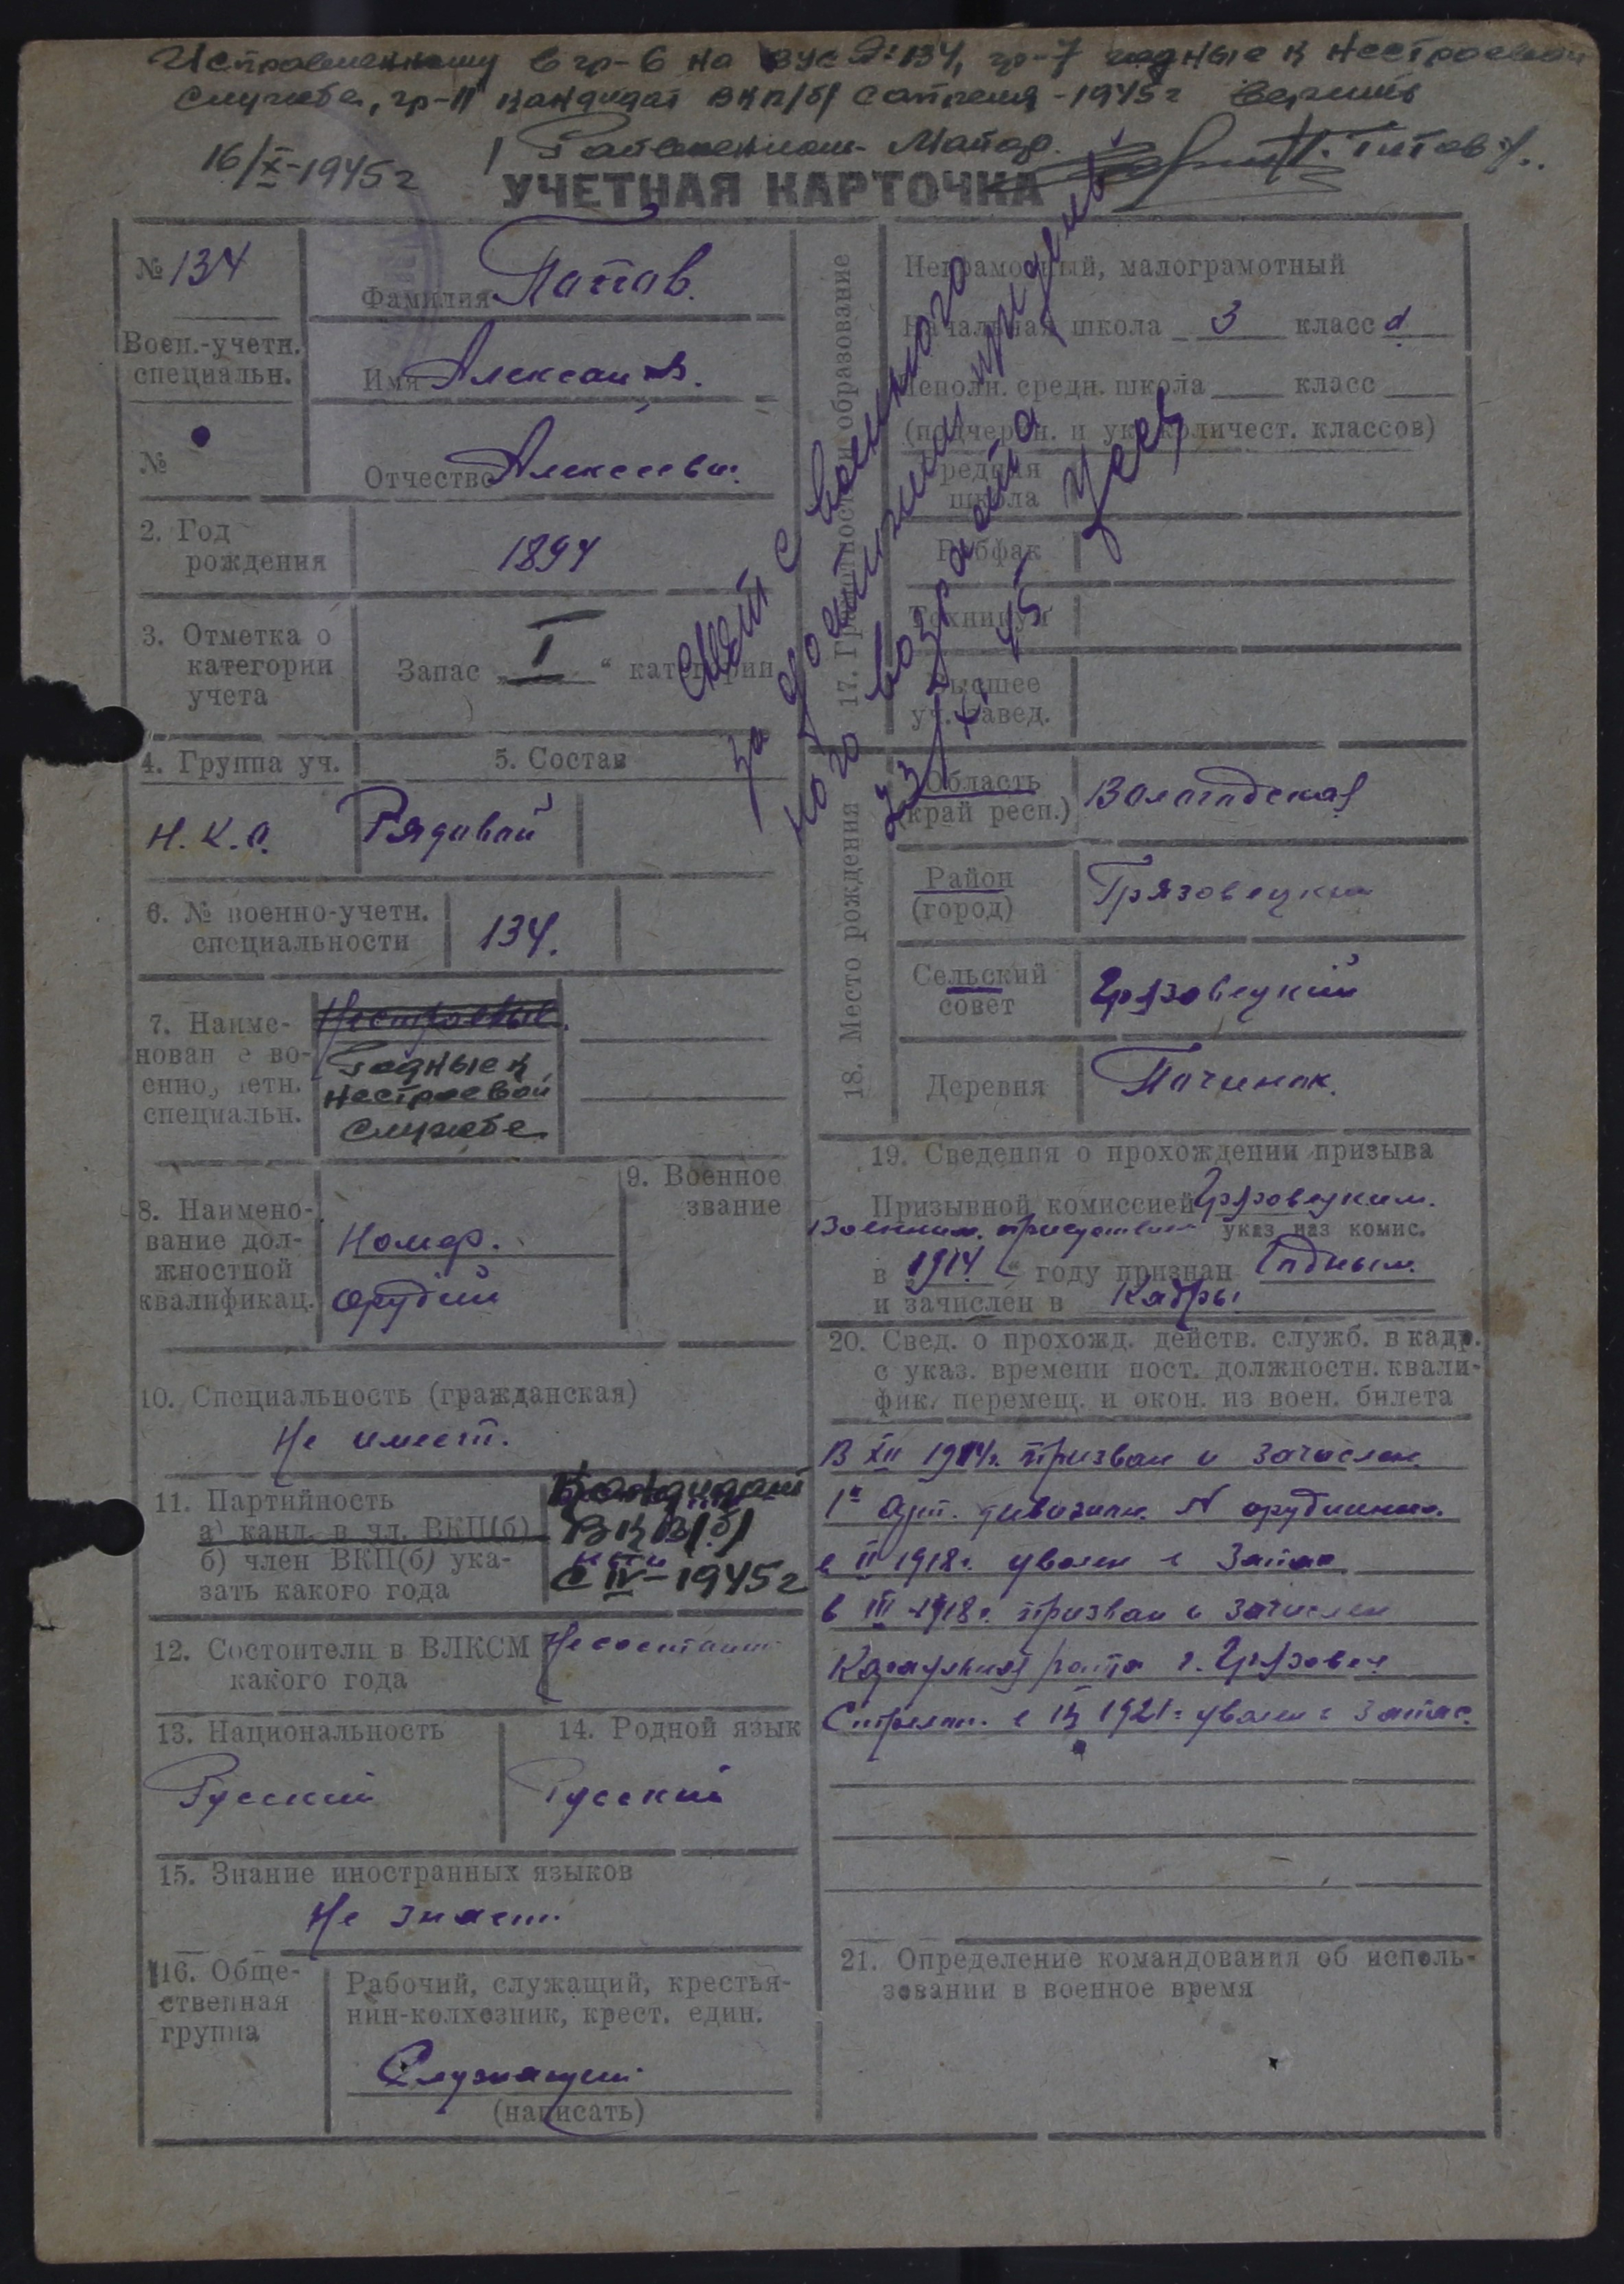 Исправленному в гр-6 на ВУС №134, гр-7 годные к нестроевой
службе, гр-11 кандидат ВКП/б/ с апреля - 1945 г верить
16/X-1945 г
Титов
УЧЕТНАЯ КАРТОЧКА
№ 134
Фамилия Попов.
Воен.-учетн.
специальн.
Имя Александ.
№
Отчество Алексеевич.
2. Год
рождения
1894
3. Отметка о
категории
учета
Запас I “ категории
4. Группа уч.
5. Состав
Н.К.О.
Рядовой
6. № военно-учетн.
специальности
134.
7. Наиме-
нование во-
енно-учетн.
специальн.
Нестроевые.
Годные к
нестроевой
службе
8. Наимено-
вание дол-
жностной
квалификац.
Номер.
орудий
9. Военное
звание
10. Специальность (гражданская)
Не имеет.
11. Партийность
а) канд. в чл. ВКП(б)
б) член ВКП(б) ука-
зать какого года
Кандидат
ВКП(б)
с IV-1945 г
12. Состоит ли в ВЛКСМ
какого года
Не состоит
13. Национальность
Русский
14. Родной язык
Русский
15. Знание иностранных языков
Не знает.
16. Обще-
ственная
группа
Рабочий, служащий, крестья-
нин-колхозник, крест. един.
Служащий
(написать)
Снят с воинского
за достижением предель
ного возраста
23/XI 45
17. Грамотность и образование
Неграмотный, малограмотный
Начальная школа 3 класса
Неполн. средн. школа класс
(подчеркн. и ук. количест. классов)
Средняя
школа
Рабфак
Техникум
Высшее
уч. завед.
18. Место рождения
Область
(край респ.)
Вологодская
Район
(город)
Грязовецкий
Сельский
совет
Грязовецкий
Деревня
Починок.
19. Сведения о прохождении призыва
Призывной комиссией Грязовецким.
Воинским. присутствием указ. наз комис.
в „1914“ году признан Годным.
и зачислен в Кадры.
20. Свед. о прохожд. действ. служб. в кадр.
с указ. времени пост. должностн. квали-
фик. перемещ. и окон. из воен. билета
В XII 1914г. призван и зачислен.
1й арт. дивизион. N орудийный.
в II 1918г. уволен в запас
в III 1918г. призван и зачислен
Караульная рота г. Грязовец
Стрелок. в 1921г уволен в запас.
21. Определение командования об исполь-
зовании в военное время